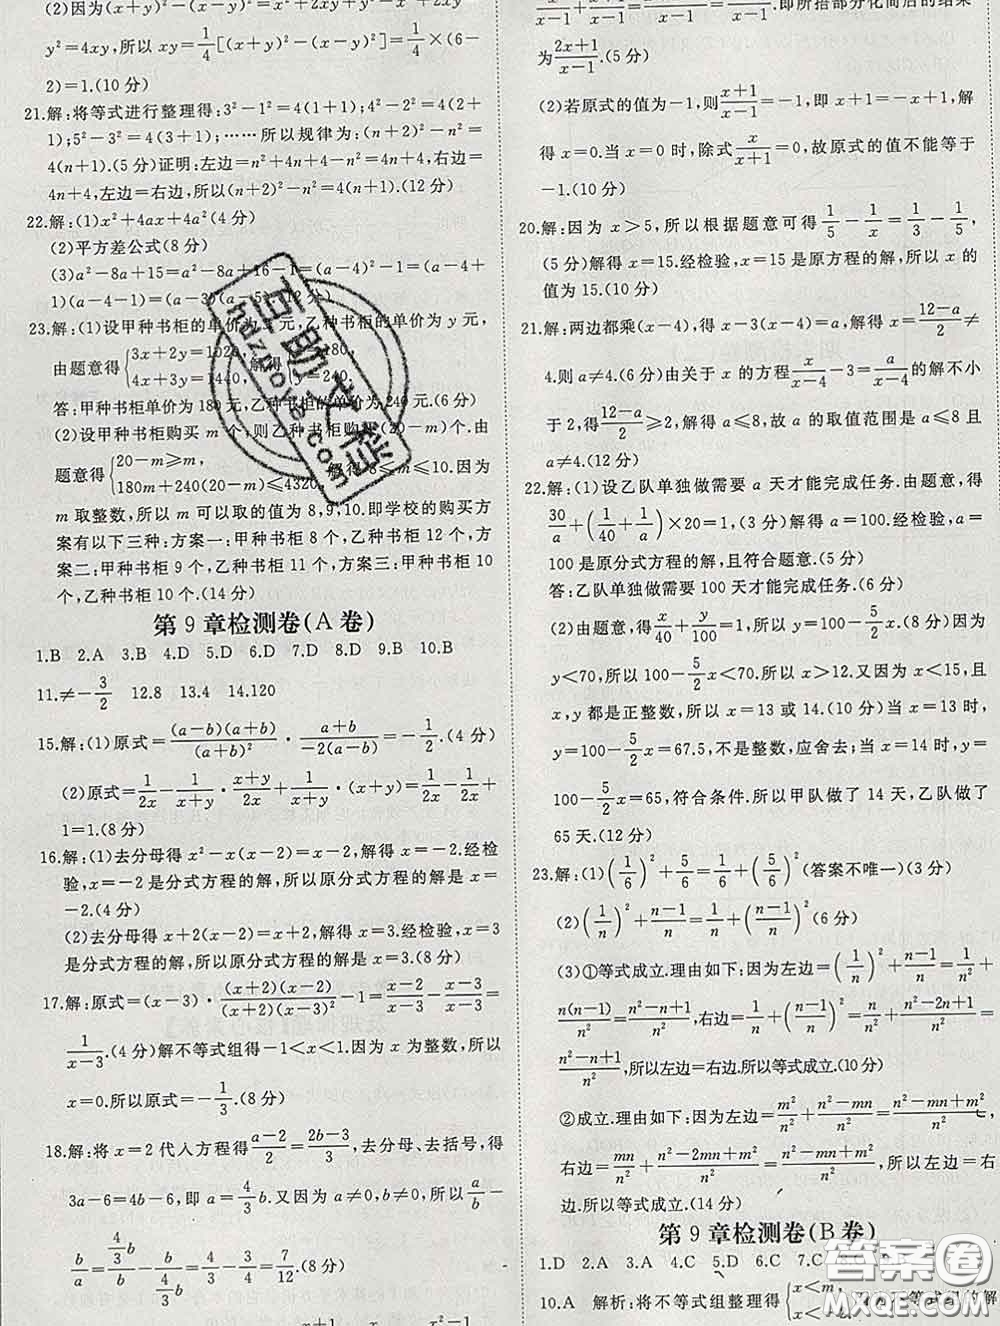 (2)因为(x+y)²-(x-y)²=x²+2xy+y²-x²+2xy-
y²=4xy,所以 xy=1/4[(x+y)²-(x-y)²]=1/4×(6-
2)=1.(10分)
21.解:将等式进行整理得:3²-1²=4(1+1);4²-2²=4(2+
1);5²-3²=4(3+1);……所以规律为:(n+2)²-n²=
4(n+1).(5分)证明:左边=n²+4n+4-n²=4n+4,右边=
4n+4,左边=右边,所以(n+2)²-n²=4(n+1).(12分)
22.解:(1)x²+4ax+4a²(4分)
(2)平方差公式(8分)
(3)a²-8a+15=a²-8a+16-1=(a-4)²-1=(a-4+
1)(a-4-1)=(a-3)(a-5).(12分)
23.解:(1)设甲种书柜的单价为x元,乙种书柜的单价为 y 元,
由题意得{3x+2y=1020, 4x+3y=1440,解得{x=180, y=240.
答:甲种书柜单价为180元,乙种书柜的单价为240元.(6分)
(2)设甲种书柜购买 m 个,则乙种书柜购买(20-m)个.由
题意得{20-m≥m, 180m+240(20-m)≤4320,解得8≤m≤10.因为
m 取整数,所以 m 可以取的值为 8,9,10.即学校的购买方
案有以下三种:方案一:甲种书柜 8 个,乙种书柜 12 个,方
案二:甲种书柜 9 个,乙种书柜 11 个,方案三:甲种书柜 10
个,乙种书柜 10 个.(14分)
第 9 章检测卷(A 卷)
1.B 2.A 3.B 4.D 5.D 6.D 7.D 8.D 9.B 10.B
11.≠-3/2 12.8 13.4 14.120
15.解:(1)原式=(a-b)(a+b)/(a+b)²·(a+b)/-2(a-b)=-1/2.(4分)
(2)原式=1/2x-1/(x+y)·(x+y)/2x+1/(x+y)·(x+y)=1/2x-1/2x+
1=1.(8分)
16.解:(1)去分母得 x²-x(x-2)=x-2,解得 x=-2.经检
验,x=-2 是分式方程的解,所以原分式方程的解是 x=
-2.(4分)
(2)去分母得 x+2(x-2)=x+2,解得 x=3.经检验,x=3
是分式方程的解,所以原分式方程的解是 x=3.(8分)
17.解:原式=(x-3)·(x+2)(x-2)/(x+2)(x-3)²-1=(x-2)/(x-3)-(x-3)/(x-3)=
1/(x-3).(4分)解不等式组得-1<x<1.因为 x 为整数,所以
x=0.所以原式=-1/3.(8分)
18.解:将 x=2 代人方程得(a-2)/2=(2b-3)/3,去分母、去括号,得
3a-6=4b-6,即 a=4/3b.又因为 a≠0,b≠0,所以a/b-
b/a=4/3b/b-b/4/3b=4/3-3/4=7/12.(8分)
x/(x-1)+(x+1)/(x-1) .即所捂部分化简后的结果
为(2x+1)/(x-1).(5分)
(2)若原式的值为-1,则(x+1)/(x-1)=-1,即 x+1=-x+1,解
得 x=0.当 x=0 时,除式x/(x+1)=0,故原式的值不能等于
-1.(10分)
20.解:因为 x>5,所以根据题意可得1/5-1/x=1/3-1/5,
(5分)解得 x=15.经检验,x=15 是原方程的解,所以 x 的
值为 15.(10分)
21.解:两边都乘(x-4),得 x-3(x-4)=a,解得 x=(12-a)/2≠
4.则 a≠4.(6分)由关于 x 的方程x/(x-4)-3=a/(x-4)的解不小
于2,得(12-a)/2≥2,解得 a≤8,故 a 的取值范围是 a≤8 且
a≠4.(12分)
22.解:(1)设乙队单独做需要 a 天才能完成任务.由题意,得
30/a+(1/40+1/a)×20=1,(3分)解得 a=100.经检验,a=
100 是原分式方程的解,且符合题意.(5分)
答:乙队单独做需要 100 天才能完成任务.(6分)
(2)由题意,得x/40+y/100=1,所以 y=100-5/2x.(8分)因为
y<70,所以100-5/2x<70,所以 x>12.又因为 x<15,且
x,y 都是正整数,所以 x=13 或 14.(10分)当 x=13 时,
y=100-5/2x=67.5,不是整数,应舍去;当 x=14 时,y=
100-5/2x=65,符合条件.所以甲队做了 14 天,乙队做了
65 天.(12分)
23.解:(1)(1/6)²+5/6=1/6+(5/6)²(答案不唯一)(3分)
(2)(1/n)²+(n-1)/n=1/n+((n-1)/n)²(6分)
(3)①等式成立.理由如下:因为左边=(1/n)²+(n-1)/n=1/n²+
n(n-1)/n²=(n²-n+1)/n²,右边=1/n+((n-1)/n)²=n/n²+(n²-2n+1)/n²=
(n²-n+1)/n²,所以左边=右边.所以等式成立.(10分)
②成立.理由如下:因为左边=m²/n²+(n²-mn)/n²=(n²-mn+m²)/n²,
右边=mn/n²+(n²-2mn+m²)/n²=(n²-mn+m²)/n²,所以左边=右
边.所以等式成立.(14分)
第 9 章检测卷(B 卷)
1.D 2.A 3.A 4.C 5.D 6.C 7.C
10.A 解析:将不等式组整理得{x<m,
互助文档
huzhuoye.com
答案圈
MXQE.COM